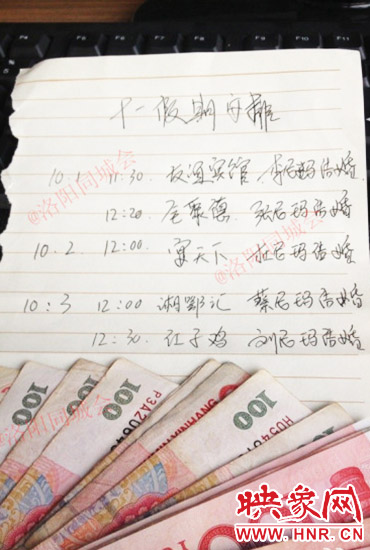 十一假期安排
10.1 11:30. 友谊宾馆 李尼玛结婚
12:20. 全聚德 张尼玛结婚
10.2 12:00. 宴天下 杜尼玛结婚
10.3 12:00 湘鄂汇 蔡尼玛结婚
12:30. 红子鸡 刘尼玛结婚
@洛阳同城会
@洛阳同城会
洛阳同城会
100
100
100
100
P3A20640
HU054
映象网
HTTP://WWW.HNR.CN